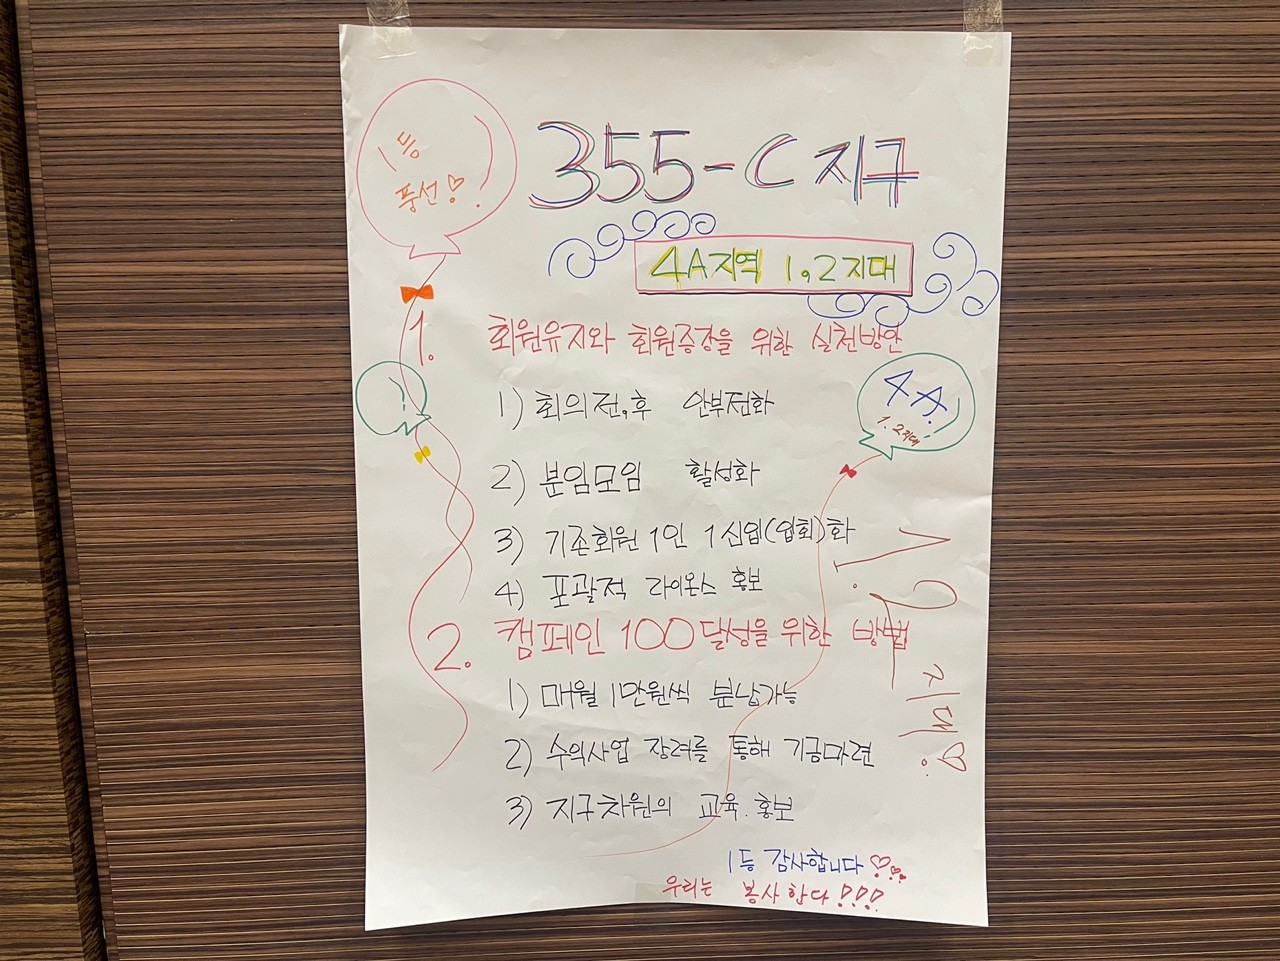 1등
풍선!
355-C 지구
4A지역 1,2지대
1. 회원유지와 회원증강을 위한 실천방안
1) 회의전,후 안부전화
4A.
1.2지대
2) 분임모임 활성화
3) 기존회원 1인 1신입(입회)화
4) 포괄적 라이온스 홍보
2. 캠페인 100달성을 위한 방법
1) 매월 1만원씩 분납가능
2) 수익사업 장려를 통해 기금마련
3) 지구차원의 교육.홍보
1등 감사합니다
우리는 봉사한다!!!